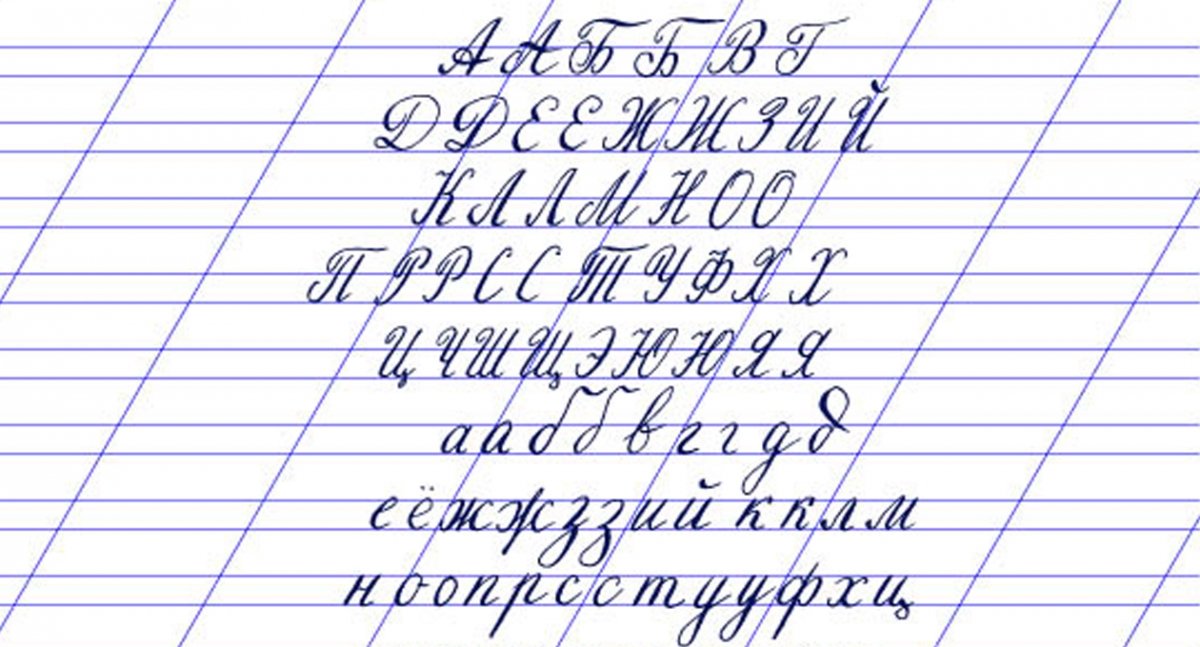 А А Б Б В Г
Д Д Е Е Ж Ж З И Й
К Л Л М Н О О
П Р Р С С Т У Ф Х Х
Ц Ч Ш Щ Э Ю Ю Я Я
а а б б в г г д д
е ё ж ж з з и й к к л м
н о о п р с с т у у ф х ц